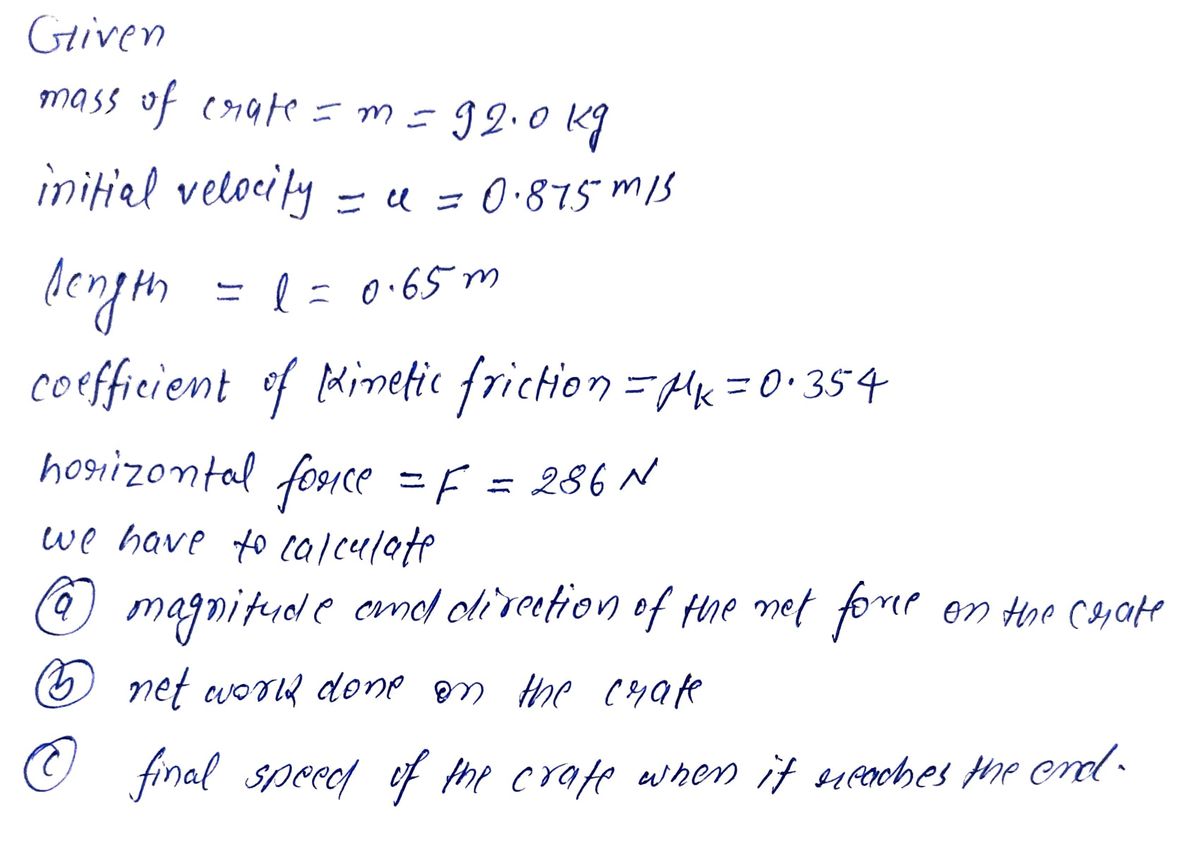 Given
mass of crate = m = 92.0 kg
initial velocity = u = 0.875 m/s
length = l = 0.65 m
coefficient of kinetic friction = μk = 0.354
horizontal force = F = 286 N
we have to calculate
(a) magnitude and direction of the net force on the crate
(b) net work done on the crate
(c) final speed of the crate when it reaches the end.